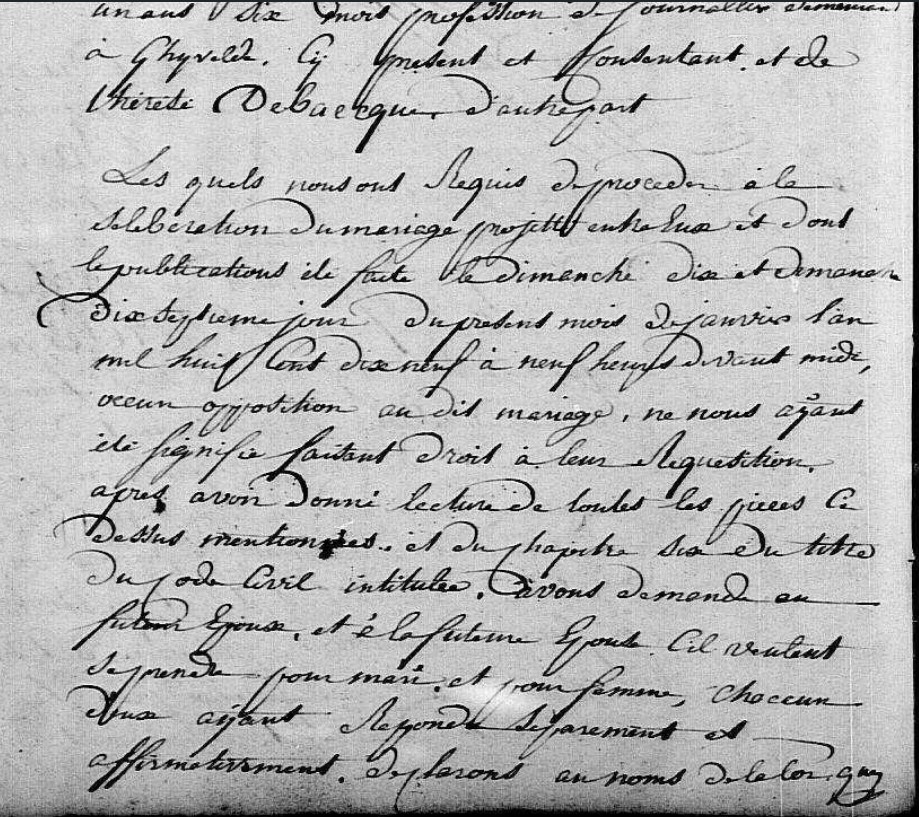 un ans dix mois profession de journallier demeurant
à Ghyvelde. Cy present et Consentant. et de
thérése Debaecque. d'autrepart
Les quels nous ont Requis de proceder à la
Selebération du mariage projetté entre Eux et dont
le publications été faite le dimanche dix et dimanche
dix Septieme jour du present mois de janvier l'an
mil huit Cent dix neuf à neuf heures devant midi,
occun opposition au dit mariage, ne nous ayant
été signifie faisant droit à leur Requesition.
apres avon donné lecture de toutes les pieces Ci
dessus mentionnées. et du chapitre six du titre
du Code Civil intitulée. avons demande au
futeur Epoux. et à la futeure Epouse. Cil veulent
se prendre pour mari. et pour femme, Chaceun
deux ayant Reponde séparement et
affirmativement. declarons au noms de la loi. que